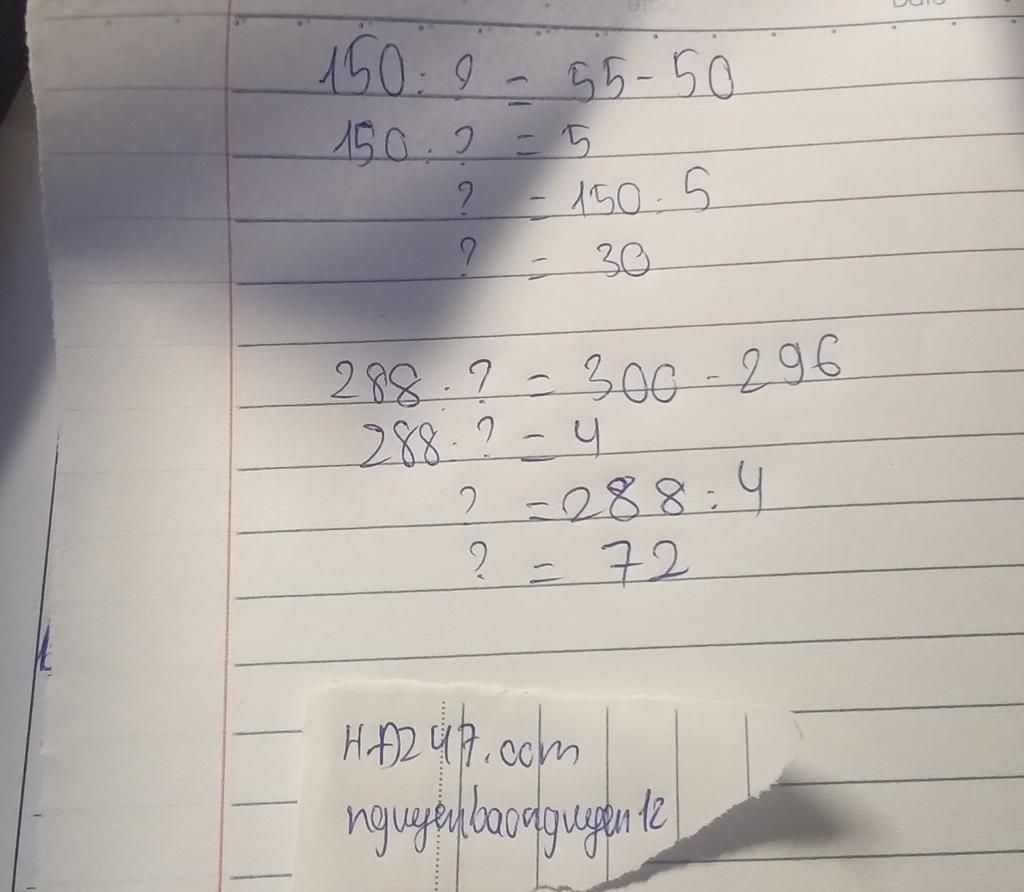 150 : ? = 55 - 50
150 : ? = 5
? = 150 : 5
? = 30
288 : ? = 300 - 296
288 : ? = 4
? = 288 : 4
? = 72
HĐ247.com
nguyenbaonguyen12